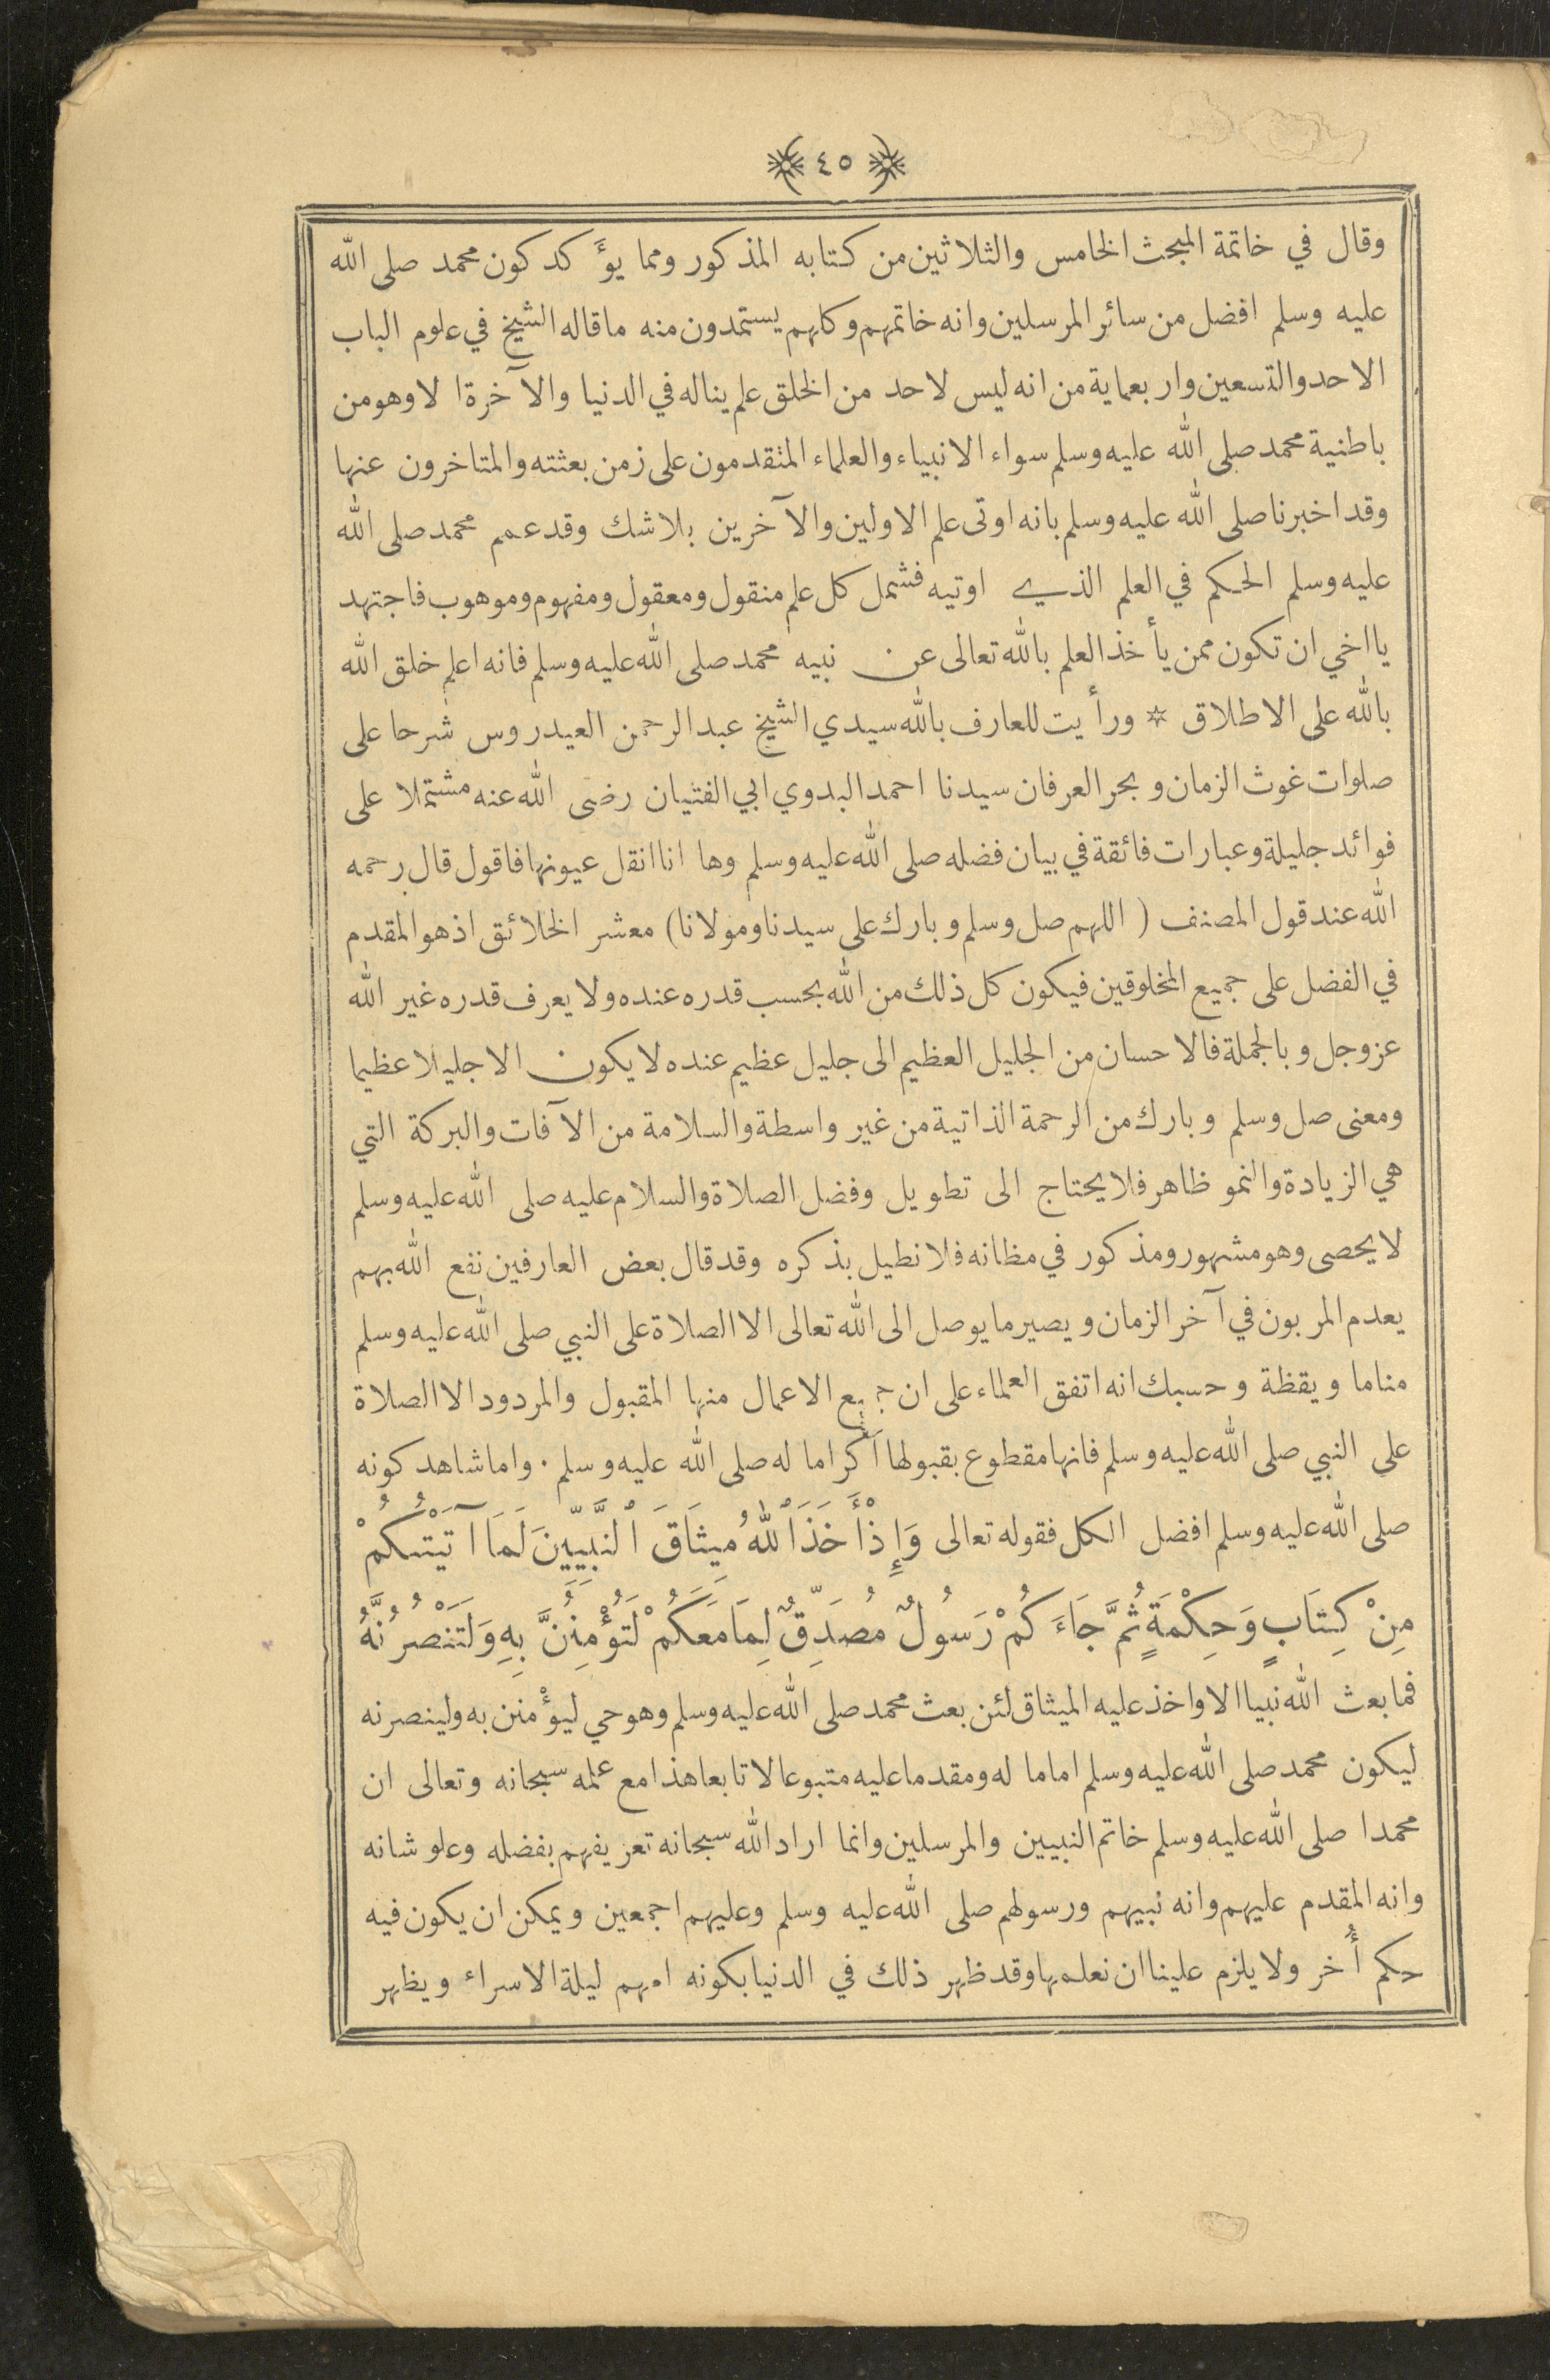 ٤٥
وقال في خاتمة المبحث الخامس والثلاثين من كتابه المذكور ومما يؤكد كون محمد صلى الله
عليه وسلم افضل من سائر المرسلين وانه خاتمهم وكلهم يستمدون منه ما قاله الشيخ في علوم الباب
الاحد والتسعين واربعماية من انه ليس لاحد من الخلق علم يناله في الدنيا والآخرة الا وهو من
باطنية محمد صلى الله عليه وسلم سواء الانبياء والعلماء المتقدمون على زمن بعثته والمتاخرون عنها
وقد اخبرنا صلى الله عليه وسلم بانه اوتى علم الاولين والآخرين بلا شك وقد عمم محمد صلى الله
عليه وسلم الحكم في العلم الذي اوتيه فشمل كل علم منقول ومعقول ومفهوم وموهوب فاجتهد
يا اخي ان تكون ممن يأخذ العلم بالله تعالى عن نبيه محمد صلى الله عليه وسلم فانه اعلم خلق الله
بالله على الاطلاق * ورأيت للعارف بالله سيدي الشيخ عبد الرحمن العيدروس شرحا على
صلوات غوث الزمان وبحر العرفان سيدنا احمد البدوي ابي الفتيان رضى الله عنه مشتملا على
فوائد جليلة وعبارات فائقة في بيان فضله صلى الله عليه وسلم وها انا انقل عيونها فاقول قال رحمه
الله عند قول المصنف ( اللهم صل وسلم وبارك على سيدنا ومولانا) معشر الخلائق اذ هو المقدم
في الفضل على جميع المخلوقين فيكون كل ذلك من الله بحسب قدره عنده ولا يعرف قدره غير الله
عز وجل وبالجملة فالاحسان من الجليل العظيم الى جليل عظيم عنده لا يكون الا جليلا عظيما
ومعنى صل وسلم وبارك من الرحمة الذاتية من غير واسطة والسلامة من الآفات والبركة التي
هي الزيادة والنمو ظاهر فلا يحتاج الى تطويل وفضل الصلاة والسلام عليه صلى الله عليه وسلم
لا يحصى وهو مشهور ومذكور في مظانه فلا نطيل بذكره وقد قال بعض العارفين نفع الله بهم
يعدم المربون في آخر الزمان ويصير ما يوصل الى الله تعالى الا الصلاة على النبي صلى الله عليه وسلم
مناما ويقظة وحسبك انه اتفق العلماء على ان جميع الاعمال منها المقبول والمردود الا الصلاة
على النبي صلى الله عليه وسلم فانها مقطوع بقبولها اكراما له صلى الله عليه وسلم . واما شاهد كونه
صلى الله عليه وسلم افضل الكل فقوله تعالى وَإِذْ أَخَذَ ٱللهُ مِيثَاقَ ٱلنَّبِيِّينَ لَمَا آتَيْتُكُمْ
مِنْ كِتَابٍ وَحِكْمَةٍ ثُمَّ جَاءَكُمْ رَسُولٌ مُصَدِّقٌ لِمَا مَعَكُمْ لَتُؤْمِنُنَّ بِهِ وَلَتَنْصُرُنَّهُ
فما بعث الله نبيا الا واخذ عليه الميثاق لئن بعث محمد صلى الله عليه وسلم وهو حي ليؤمنن به ولينصرنه
ليكون محمد صلى الله عليه وسلم اماما له ومقدما عليه متبوعا لا تابعا هذا مع علمه سبحانه وتعالى ان
محمدا صلى الله عليه وسلم خاتم النبيين والمرسلين وانما اراد الله سبحانه تعريفهم بفضله وعلو شانه
وانه المقدم عليهم وانه نبيهم ورسولهم صلى الله عليه وسلم وعليهم اجمعين ويمكن ان يكون فيه
حكم أُخر ولا يلزم علينا ان نعلمها وقد ظهر ذلك في الدنيا بكونه امهم ليلة الاسراء ويظهر